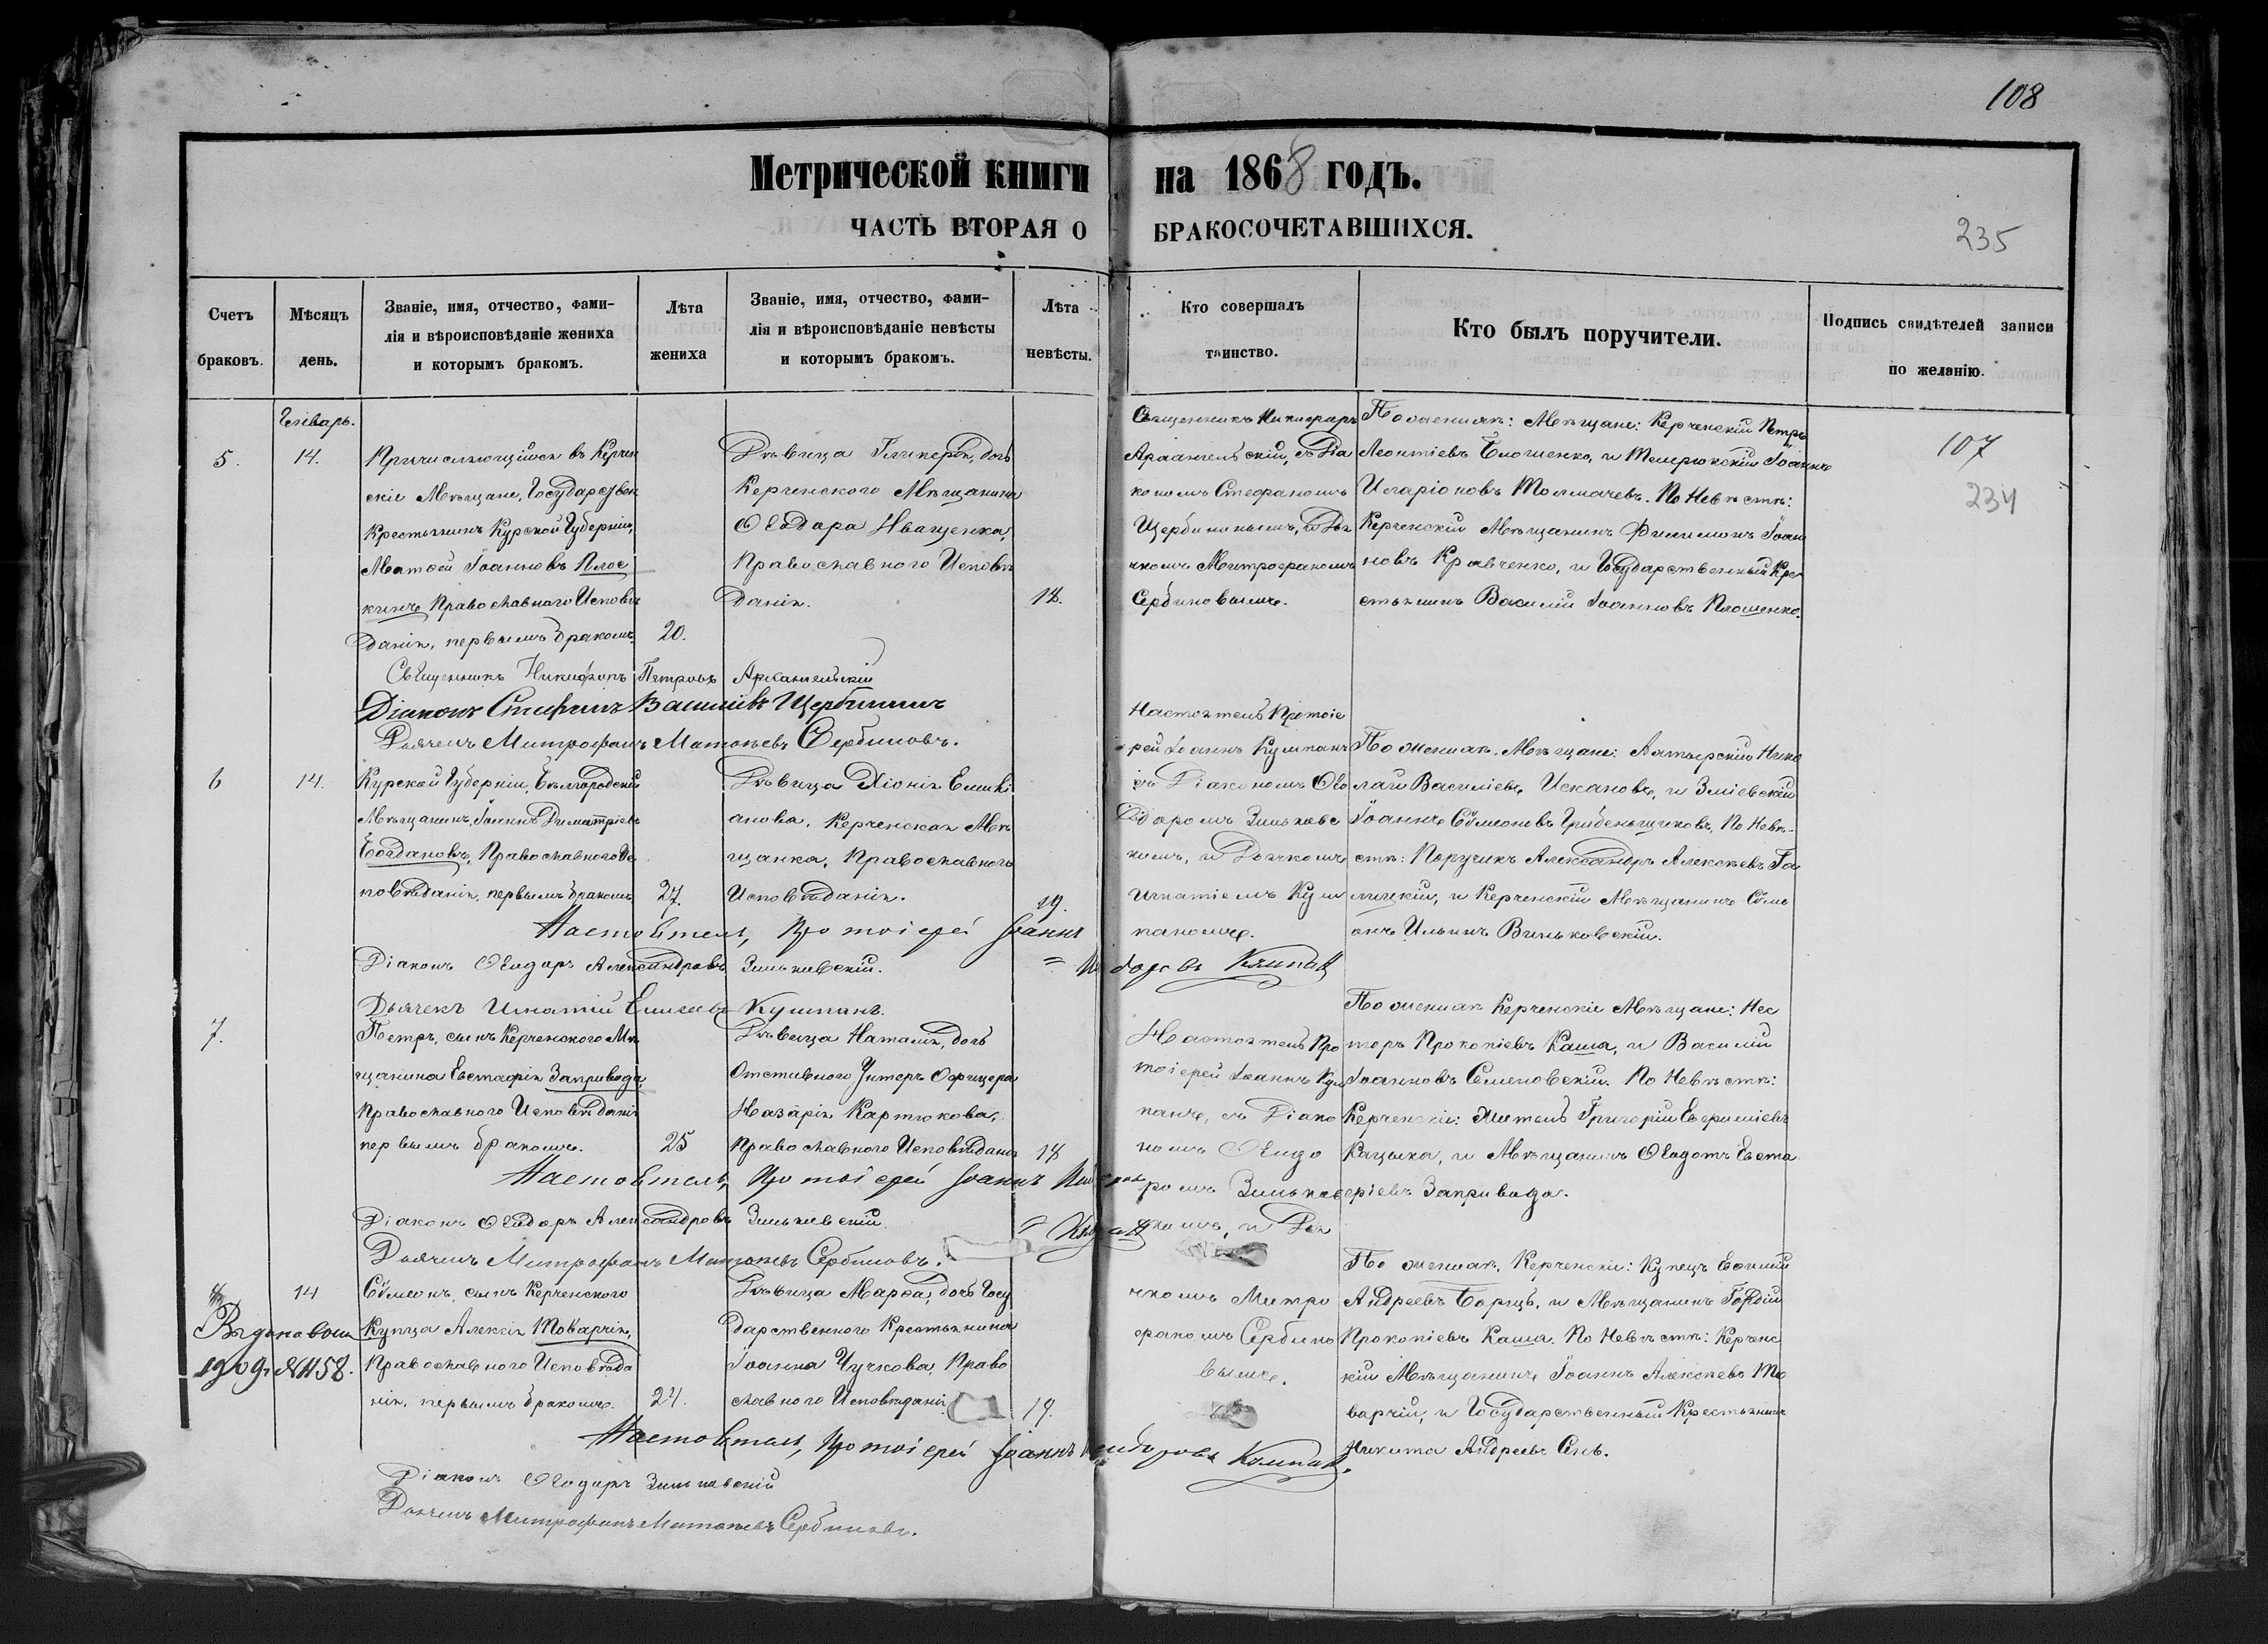 108
Метрической книги на 1868 годъ.
ЧАСТЬ ВТОРАЯ О БРАКОСОЧЕТАВШИХСЯ.
235
Счетъ браковъ.
Мѣсяцъ день.
Званіе, имя, отчество, фами-
лія и вѣроисповѣданіе жениха
и которымъ бракомъ.
Лѣта
жениха
Званіе, имя, отчество, фами-
лія и вѣроисповѣданіе невѣсты
и которымъ бракомъ.
Лѣта
невѣсты.
Кто совершалъ
таинство.
Кто былъ поручители.
Подпись свидѣтелей записи
по желанію.
107
234
Генварь.
5.
14.
Причисляющійся въ Керчен
скіе Мѣщане, Государствен
Крестьянинъ Курской Губерніи,
Матѳей Іоанновъ Плос
кинъ Православнаго Исповѣ
данія, первымъ бракомъ.
20.
Дѣвица Гликерія, дочь
Керченского Мѣщанина
Ѳеодора Иващенка,
Православного Исповѣ
данія.
18.
Священникъ Никифоръ
Архангельскій, съ Діа
кономъ Стефаномъ
Щербининымъ, и Дья
чкомъ Митрофаномъ
Сербиновымъ.
По женихѣ: Мѣщане: Керченскій Петръ
Леонтіевъ Блошенко, и Темрюкскій Іоаннъ
Иларіоновъ Толмачевъ. По Невѣстѣ:
Керченскій Мѣщанинъ Филимонъ Іоан
новъ Кравченко, и Государственный Кре
стьянинъ Василій Іоанновъ Плошенко.
Священникъ Никифоръ Петровъ Архангельскій
Діаконъ Стефанъ Василіевъ Щербининъ
Дьячекъ Митрофанъ Матѳѣевъ Сербиновъ.
6
14.
Курской Губерніи, Бѣлгородскій
Мѣщанинъ, Іоаннъ Димитріевъ
Богдановъ, Православного Ис
повѣданія, первымъ бракомъ
27.
Дѣвица Хіонія
анова, Керченская Мѣ
щанка, Православного
Исповѣданія.
19.
Настоятель Протоіе
рей Іоаннъ Кумпанъ
съ Діакономъ Ѳео
доромъ Зиньковс
комъ, и Дьячкомъ
Игнатіемъ Кум
паномъ.
По женихѣ. Мѣщане: Нико
лай Василіевъ Искановъ, и Зміевскій
Іоаннъ Сѵмеоновъ Гребеньщиковъ, По Невѣ-
стѣ: Поручикъ Александръ Алексѣевъ Га
лицкій, и Керченскій Мѣщанинъ Сѵме
онъ Ильинъ Виньковскій.
Настоятель, Протоіерей Іоаннъ
Кумпанъ
Діаконъ Ѳеодоръ Александровъ Зиньковскій.
Дьячекъ Игнатій Кумпанъ.
7.
Петръ, сынъ Керченского Мѣ
щанина Евстафія Запривода,
Православного Исповѣданія
первымъ бракомъ.
25
Дѣвица Наталія, дочь
Отставного Унтеръ Офицера
Назарія Картюкова,
Православного Исповѣданія
18
Настоятель Про
тоіерей Іоаннъ Кум
панъ, съ Діако
номъ Ѳеодо
ромъ Зиньковс
комъ, и Дья
чкомъ Митро
фаномъ Сербино
вымъ.
По женихѣ Керченскіе Мѣщане: Нес
торъ Прокопіевъ Каша, и Василій
Іоанновъ Семеновскій. По Невѣстѣ:
Керченскіе: Житель Григорій Евфиміевъ
Кацыка, и Мѣщанинъ Ѳеодотъ Евста
фіевъ Запривода.
Настоятель, Протоіерей Іоаннъ
Діаконъ Ѳеодоръ Александровъ Зиньковскій
Дьячекъ Митрофанъ Матѳѣевъ Сербиновъ.
14
Сѵмеонъ, сынъ Керченского
Купца Алексія Товарчія,
Православного Исповѣда
нія, первымъ бракомъ.
24.
1909г №1158.
Дѣвица Марѳа, дочь Госу
дарственного Крестьянина
Іоанна Чучкова, Право
славного Исповѣданія
19.
По женихѣ, Керченскіе: Купецъ Евфимій
Андреевъ Борщъ, и Мѣщанинъ Гордій
Прокопіевъ Каша. По Невѣстѣ: Керченс
кій Мѣщанинъ Іоаннъ Алексѣевъ То
варчій, и Государственный Крестьянинъ
Никита Андреевъ Сень.
Настоятель, Протоіерей Іоаннъ Кумпанъ.
Діаконъ Ѳеодоръ Зиньковскій
Дьячекъ Митрофанъ Матѳѣевъ Сербиновъ.